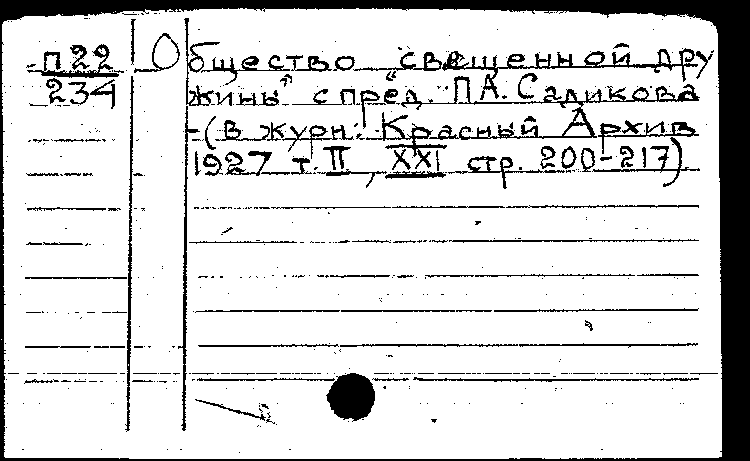 п22
234
Общество "священной дру
жины" с пред. П.А. Садикова
-(в журн.: Красный Архив
1927 т. II, XXI стр. 200-217)